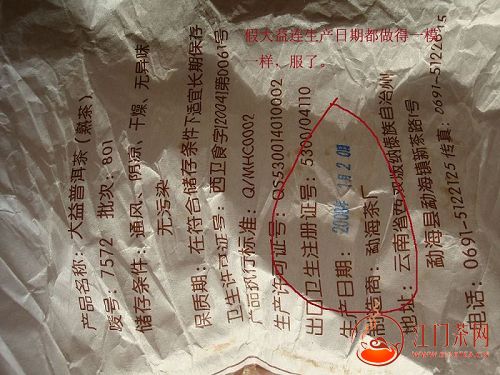 假大益连生产日期都做得一模
一样，服了。
产品名称：大益普洱茶（熟茶）
唛号：7572 批次：801
储存条件：通风、阴凉、干燥、无异味
无污染
保质期：在符合储存条件下适宜长期保存
卫生许可证号：西卫食字[2004]第0061号
产品执行标准：Q/MHC0002
生产许可证号：QS530014010002
出口卫生注册证号：5300/04110
生产日期：
制造商：勐海茶厂
地址：云南省西双版纳傣族自治州
勐海县勐海镇新茶路1号
电话：0691-5122125 传真：0691-5122615
江门茶网